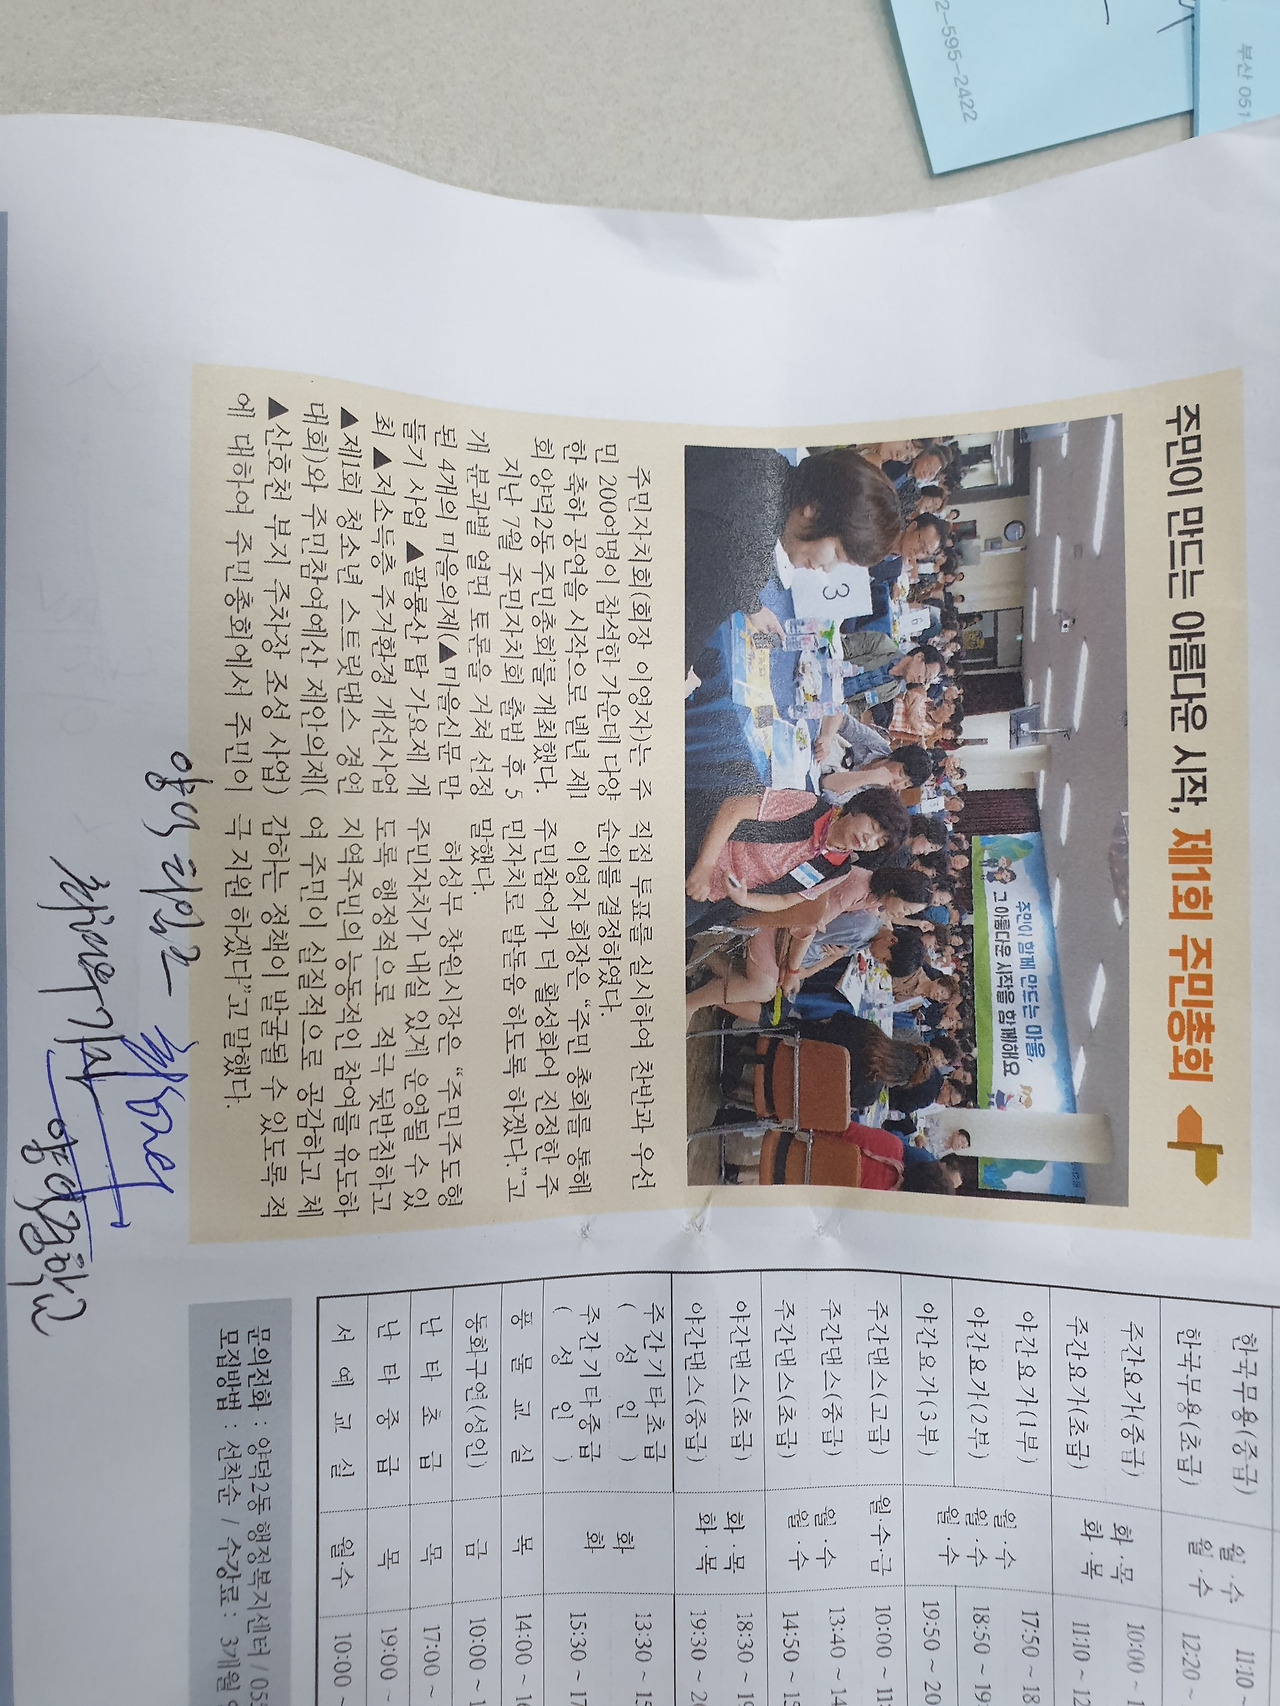 주민이 만드는 아름다운 시작, 제1회 주민총회
주민이 함께 만드는 마을,
그 아름다운 시작을 함께해요
3
주민자치회(회장 이영자)는 주
민 200여명이 참석한 가운데 다양
한 축하 공연을 시작으로 '별년 제1
회 양덕2동 주민총회'를 개최했다.
지난 7월 주민자치회 출범 후 5
개 분과별 열띤 토론을 거쳐 선정
된 4개의 마을의제(▲마을신문 만
들기 사업 ▲팔룡산 탑 가요제 개
최 ▲저소득층 주거환경 개선사업
▲제1회 청소년 스트릿댄스 경연
대회)와 주민참여예산 제안의제(
▲산호천 부지 주차장 조성 사업)
에 대하여 주민총회에서 주민이
직접 투표를 실시하여 찬반과 우선
순위를 결정하였다.
이영자 회장은 "주민 총회를 통해
주민참여가 더 활성화되어 진정한 주
민자치로 발돋움 하도록 하겠다."고
말했다.
허성무 창원시장은 "주민주도형
주민자치가 내실 있게 운영될 수 있
도록 행정적으로 적극 뒷받침하고
지역주민의 능동적인 참여를 유도하
여 주민이 실질적으로 공감하고 체
감하는 정책이 발굴될 수 있도록 적
극 지원 하겠다"고 말했다.
한국무용(중급) 월·수 11:10
한국무용(초급) 월·수 12:20 ~
주간요가(중급) 화·목 10:00 ~ 1
주간요가(초급) 화·목 11:10 ~ 12
야간요가(1부) 월·수 17:50 ~ 18
야간요가(2부) 월·수 18:50 ~ 19
야간요가(3부) 월·수 19:50 ~ 20
주간댄스(고급) 월·수·금 10:00 ~ 11
주간댄스(중급) 월·수 13:40 ~ 14
주간댄스(초급) 월·수 14:50 ~ 15
야간댄스(초급) 화·목 18:30 ~ 19
야간댄스(중급) 화·목 19:30 ~ 20
주간기타초급(성인) 화 13:30 ~ 15
주간기타중급(성인) 화 15:30 ~ 17
풍물교실 목 14:00 ~ 16
동화구연(성인) 금 10:00 ~ 1
난타초급 목 17:00 ~
난타중급 목 19:00 ~
서예교실 월·수 10:00 ~
문의전화 : 양덕2동 행정복지센터 / 05
모집방법 : 선착순 / 수강료 : 3개월
2-595-2422
부산 051